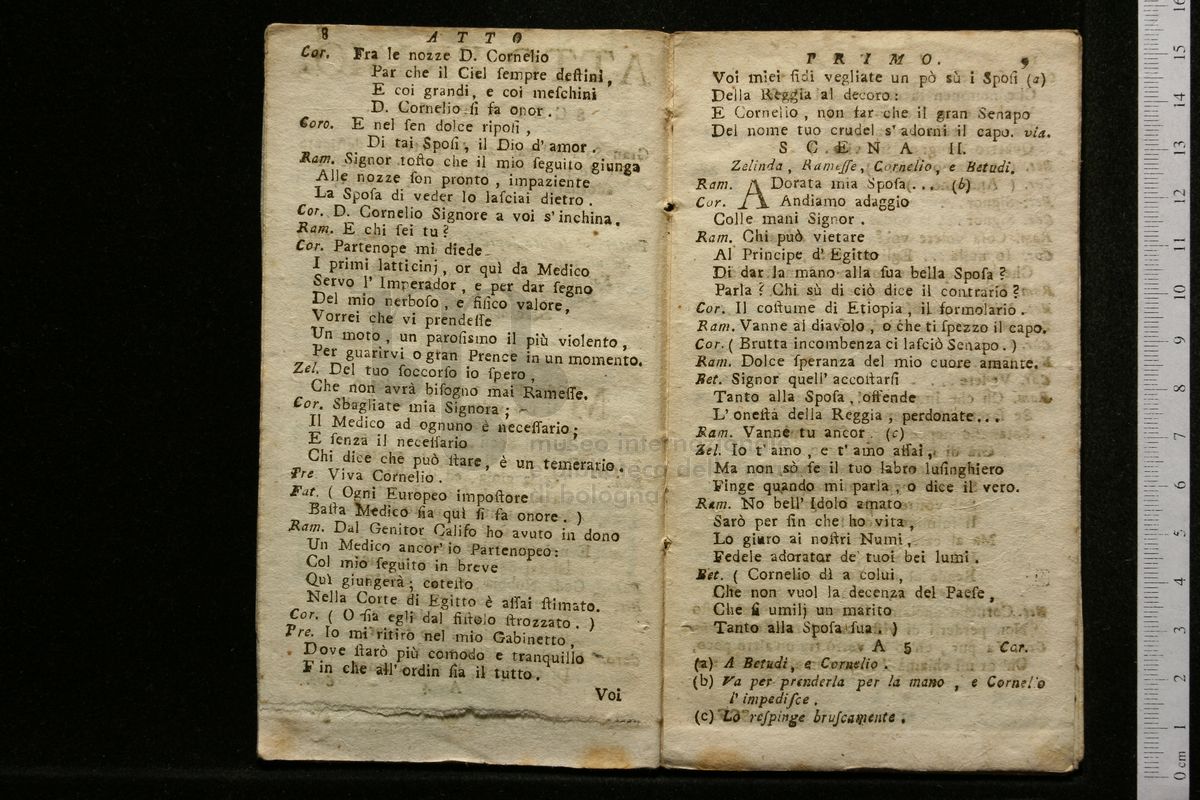 8 ATTO
Cor. Fra le nozze D. Cornelio
Par che il Ciel ſempre deſtini,
E coi grandi, e coi meſchini
D. Cornelio ſi fa onor.
Coro. E nel ſen dolce ripoſi,
Di tai Spoſi, il Dio d'amor.
Ram. Signor toſto che il mio ſeguito giunga
Alle nozze ſon pronto, impaziente
La Spoſa di veder lo laſciai dietro.
Cor. D. Cornelio Signore a voi s'inchina.
Ram. E chi ſei tu?
Cor. Partenope mi diede
I primi latticinj, or quì da Medico
Servo l'Imperador, e per dar ſegno
Del mio nerboſo, e fiſico valore,
Vorrei che vi prendeſſe
Un moto, un paroſismo il più violento,
Per guarirvi o gran Prence in un momento.
Zel. Del tuo ſoccorſo io ſpero,
Che non avrà biſogno mai Rameſſe.
Cor. Sbagliate mia Signora;
Il Medico ad ognuno è neceſſario;
E ſenza il neceſſario
Chi dice che può ſtare, è un temerario.
Pre Viva Cornelio.
Fat. (Ogni Europeo impoſtore
Baſta Medico ſia quì ſi fa onore.)
Ram. Dal Genitor Califo ho avuto in dono
Un Medico ancor'io Partenopeo:
Col mio ſeguito in breve
Quì giungerà; coteſto
Nella Corte di Egitto è aſſai ſtimato.
Cor. (O ſia egli dal fiſtolo ſtrozzato.)
Pre. Io mi ritiro nel mio Gabinetto,
Dove ſtarò più comodo e tranquillo
Fin che all'ordin ſia il tutto.
Voi
PRIMO. 9
Voi miei fidi vegliate un pò sù i Spoſi (a)
Della Reggia al decoro:
E Cornelio, non far che il gran Senapo
Del nome tuo crudel s'adorni il capo. via.
SCENA II.
Zelinda, Rameſſe, Cornelio, e Betudi.
Ram. ADorata mia Spoſa... (b)
Cor. Andiamo adaggio
Colle mani Signor.
Ram. Chi può vietare
Al Principe d'Egitto
Di dar la mano alla ſua bella Spoſa?
Parla? Chi sù di ciò dice il contrario?
Cor. Il coſtume di Etiopia, il formolario.
Ram. Vanne al diavolo, o che ti ſpezzo il capo.
Cor. (Brutta incombenza ci laſciò Senapo.)
Ram. Dolce ſperanza del mio cuore amante.
Bet. Signor quell'accoſtarſi
Tanto alla Spoſa, offende
L'oneſtà della Reggia, perdonate...
Ram. Vanne tu ancor. (c)
Zel. Io t'amo, e t'amo aſſai,
Ma non sò ſe il tuo labro luſinghiero
Finge quando mi parla, o dice il vero.
Ram. No bell'Idolo amato
Sarò per fin che ho vita,
Lo giuro ai noſtri Numi,
Fedele adorator de' tuoi bei lumi.
Bet. (Cornelio dì a colui,
Che non vuol la decenza del Paeſe,
Che ſi umilj un marito
Tanto alla Spoſa ſua.)
A 5 Cor.
(a) A Betudi, e Cornelio.
(b) Va per prenderla per la mano, e Cornelio
l'impediſce.
(c) Lo reſpinge bruſcamente.
museo internazionale
di bologna
0 cm 1 2 3 4 5 6 7 8 9 10 11 12 13 14 15 16